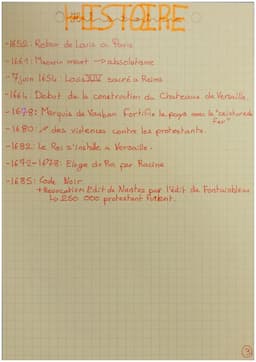 HISTOIRE
-1652: Retour de Louis à Paris
-1661: Mazarin meurt → absolutisme
-7 juin 1654: Louis XIV sacré à Reims
-1664: Debut de la construction du Chateaux de Versaille.
-1678: Marquis de Vauban fortifie le pays avec la "ceinture de
fer"
-1680: ↗ des violences contre les protestants.
-1682: Le Roi s'installe à Versaille.
-1672-1678: Eloge du Roi par Racine
-1685: Code Noir
+ Revocation Edit de Nantes par l'édit de Fontainbleau
↳ 250 000 protestant fuient.
3